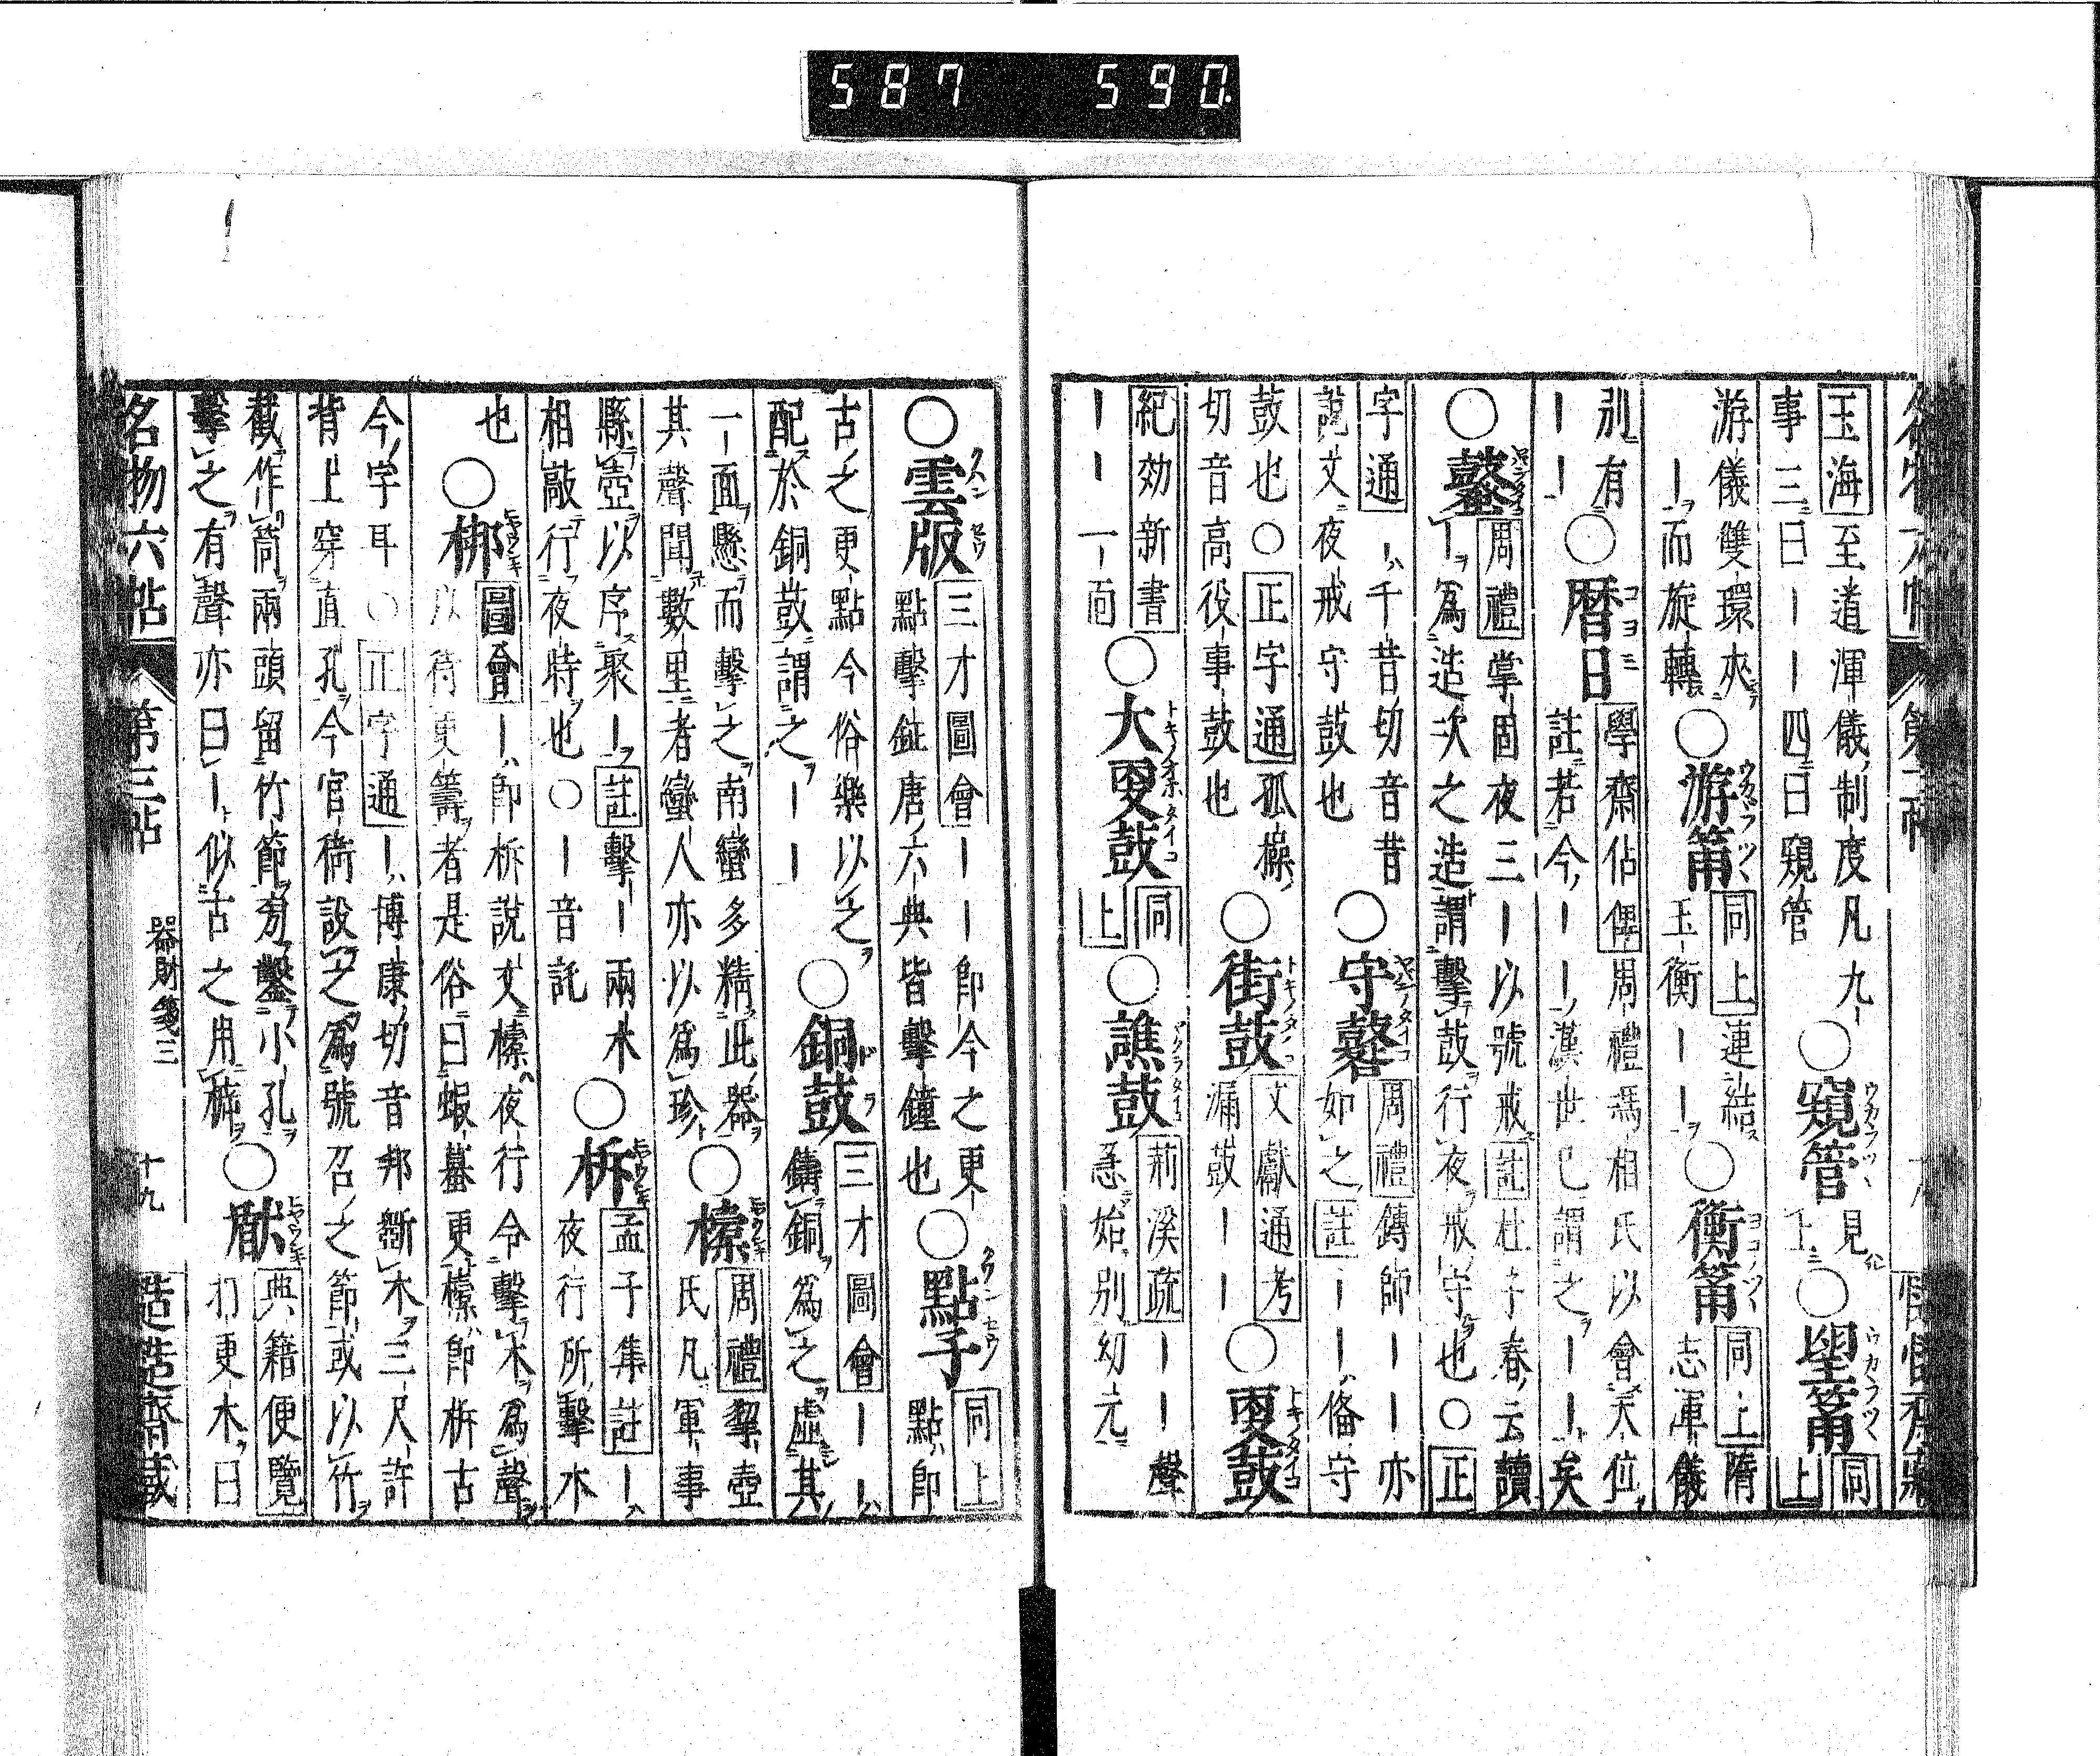 玉海至道渾儀制度凡九事三曰――四曰窺管○窺管見上○望筩同上
游儀雙環夾―而旋轉○游筩同上連結玉衡――○衡筩同上隋志渾儀
別有――○暦日學齋佔偶周禮馮相氏以會天位註若今――漢世已謂之――矣
○鼜周禮掌固夜三―以號戒註杜子春云讀―爲造次之造謂擊鼓行夜戒守也○正
字通―千昔切音昔說文夜戒守鼓也○守鼜周禮鎛師――亦如之註――備守
鼓也○正字通孤操切音高役事鼓也○街鼓文獻通考漏鼓――○更鼓
紀効新書――一面○大更鼓同上○譙鼓荊溪疏――聲急始別幼元
○雲版三才圖會――卽今之更點擊鉦唐六典皆擊鐘也○點子同上點卽
古之更點今俗樂以之配於銅鼓謂之――○銅鼓三才圖會――鑄銅爲之虛其
一面懸而擊之南蠻多精此器其聲聞數里者蠻人亦以爲珍○㯓周禮挈壺氏凡軍事
縣壺以序聚―註擊―兩木相敲行夜時也○―音託○柝孟子集註―夜行所擊木
也○梆圖會―卽柝說文㯓夜行令擊木爲聲以待更籌者是俗曰蝦蟇更㯓卽柝古
今字耳○正字通―博康切音邦斲木三尺許背上穿直孔今官衙設之爲號召之節或以竹
截作筒兩頭留竹節旁鑿小孔擊之有聲亦曰―似古之用○典籍便覽打更木曰
名物六帖 第三帖 器財箋三 十九